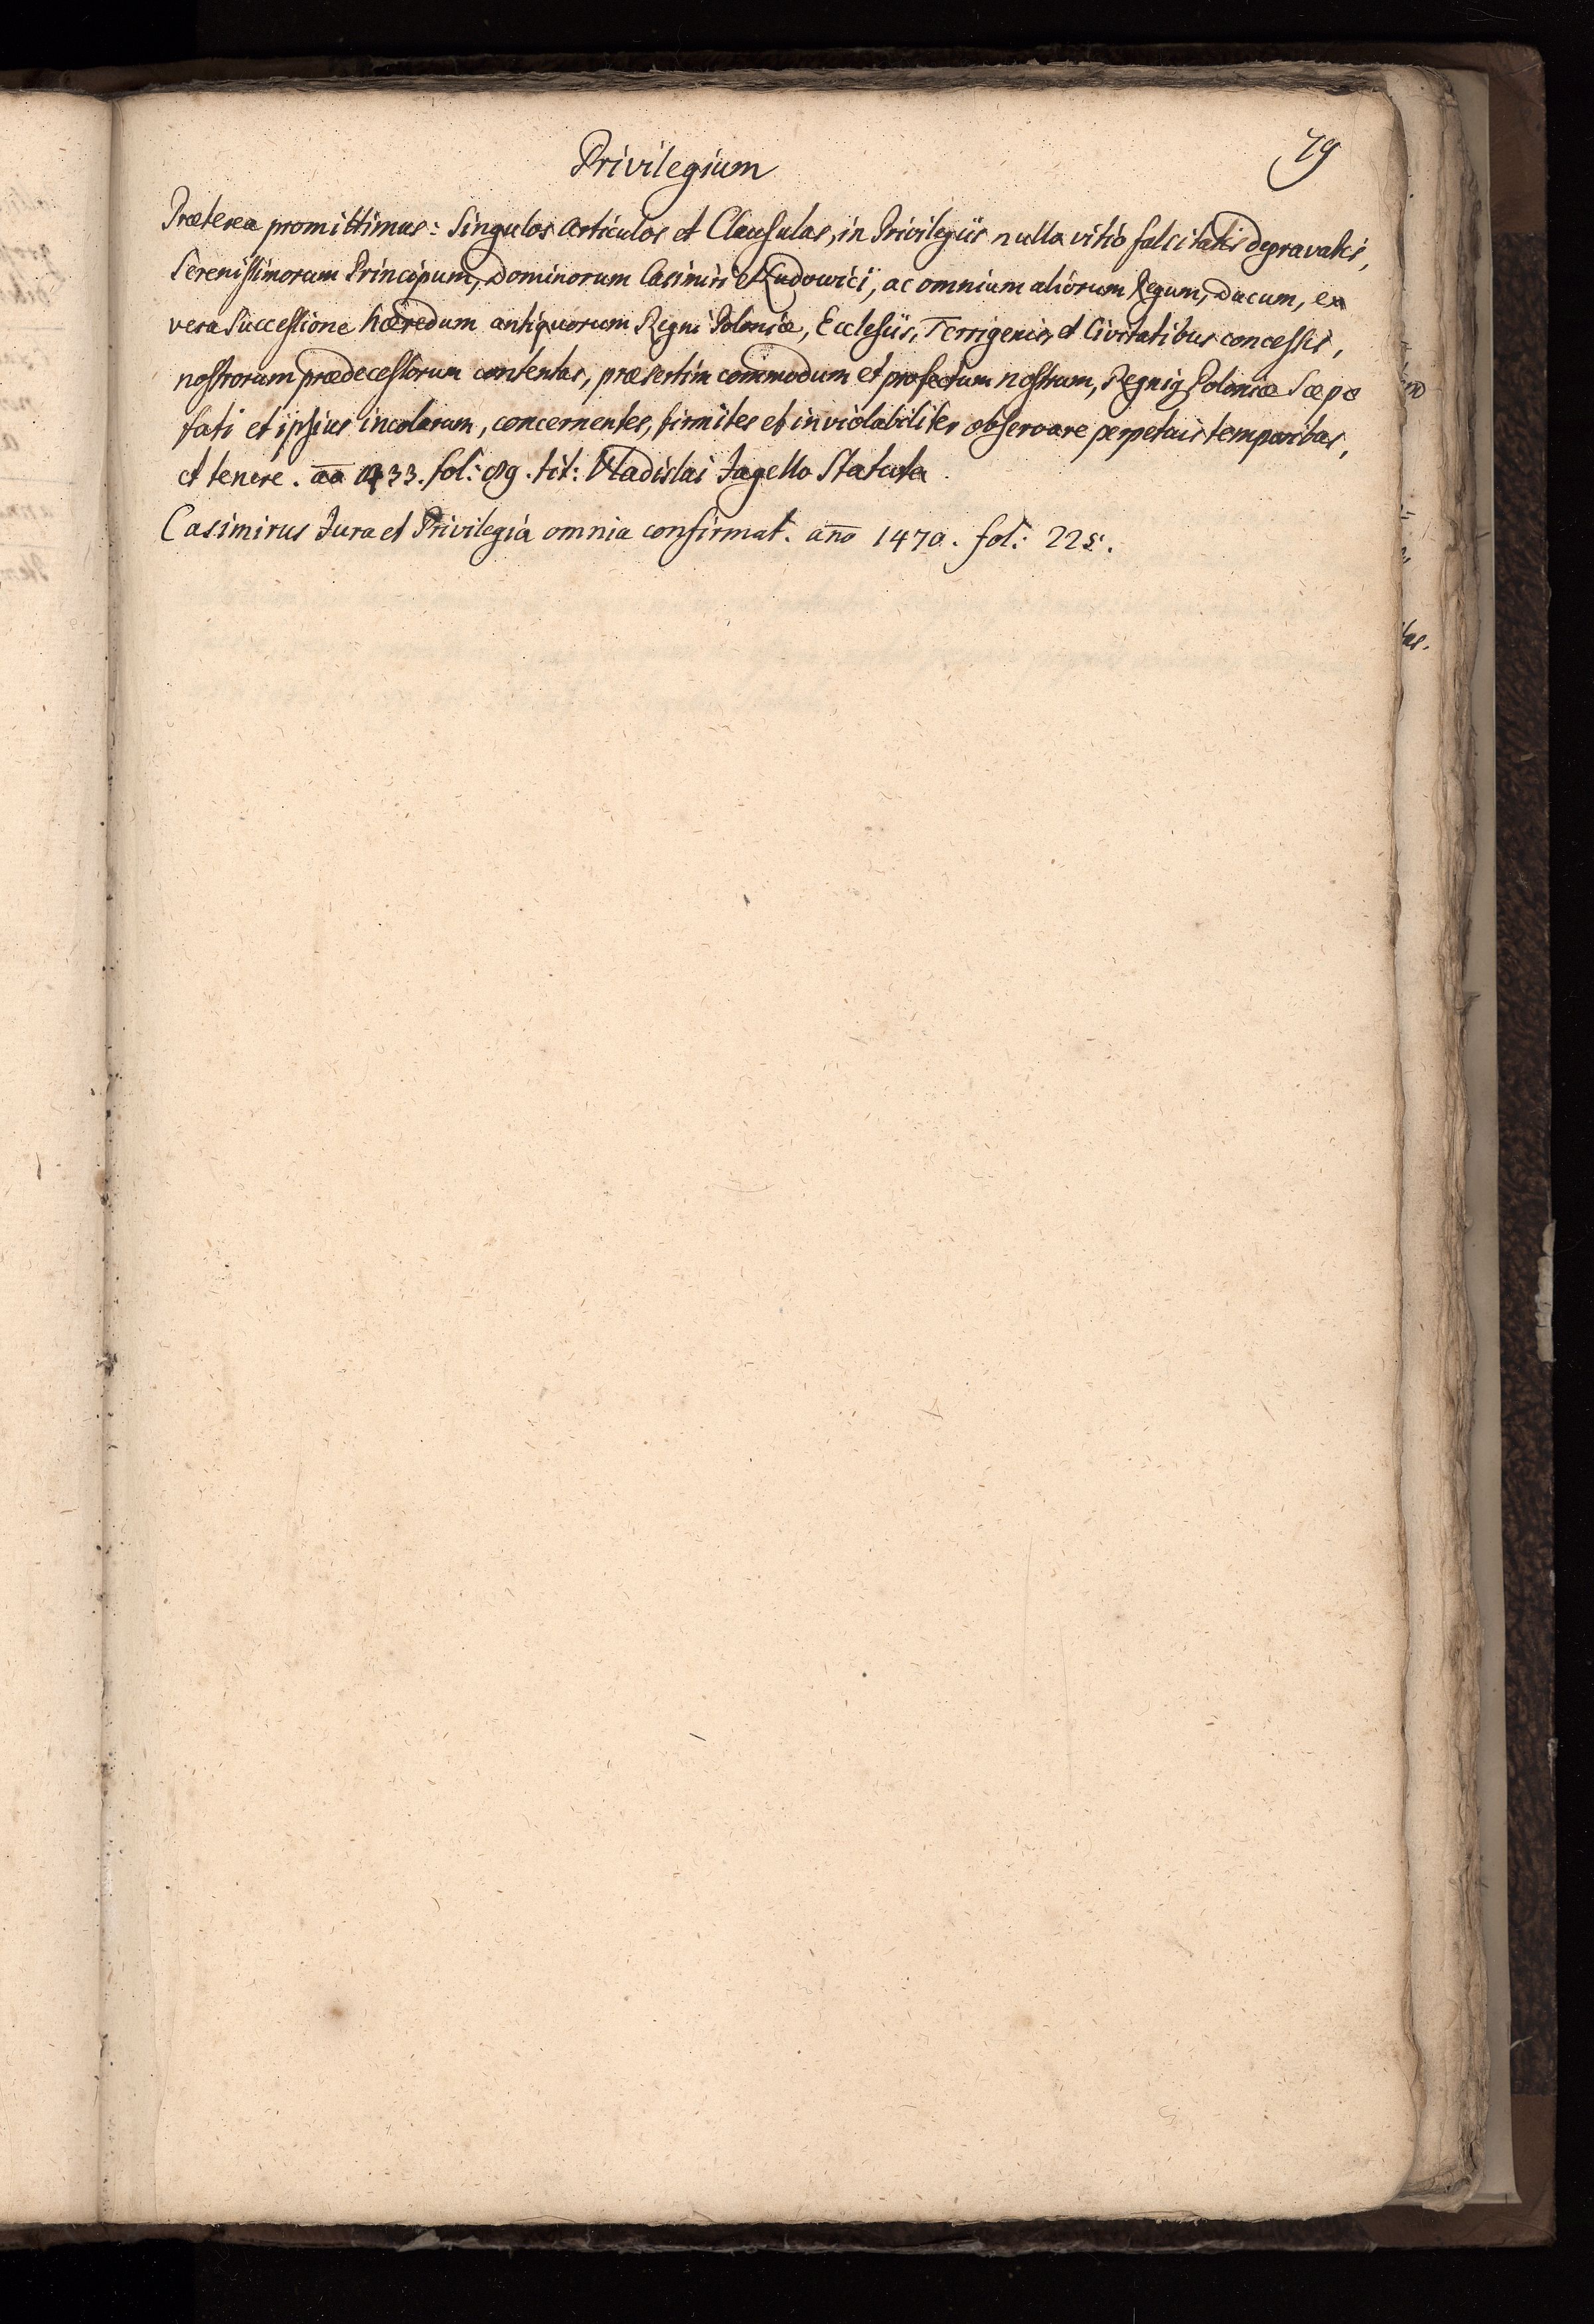 Privilegium
79
Præterea promittimus: Singulos Articulos et Clausulas, in Privilegiis nullo vitio falcitatis depravatis,
Serenissimorum Principum, Dominorum Casimiri et Ludowici, ac omnium aliorum Regum, Ducum, ex
vera Successione hæredum antiquorum Regni Poloniæ, Ecclesiis, Terrigenis, et Civitatibus concessis,
nostrorum prædecessorum contentas, præsertim commodum et profectum nostrum, Regniq Poloniæ Sæpe
fati et ipsius incolarum, concernentes, firmiter et inviolabiliter observare perpetuis temporibus,
et tenere. ao 1433. fol: 89. tit: Vladislai Jagello Statuta.
Casimirus Jura et Privilegia omnia confirmat. año 1470. fol: 225.